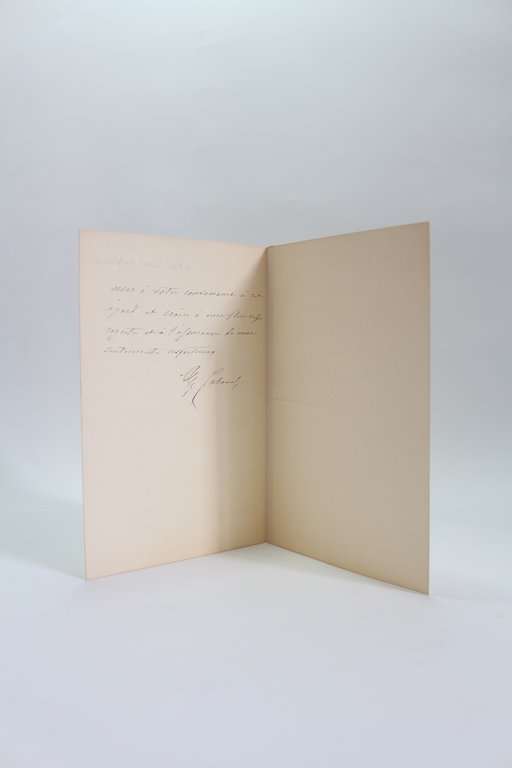 user à votre convenance à cet
égard et croire à mes plus vifs
regrets et à l'assurance de mes
sentiments respectueux